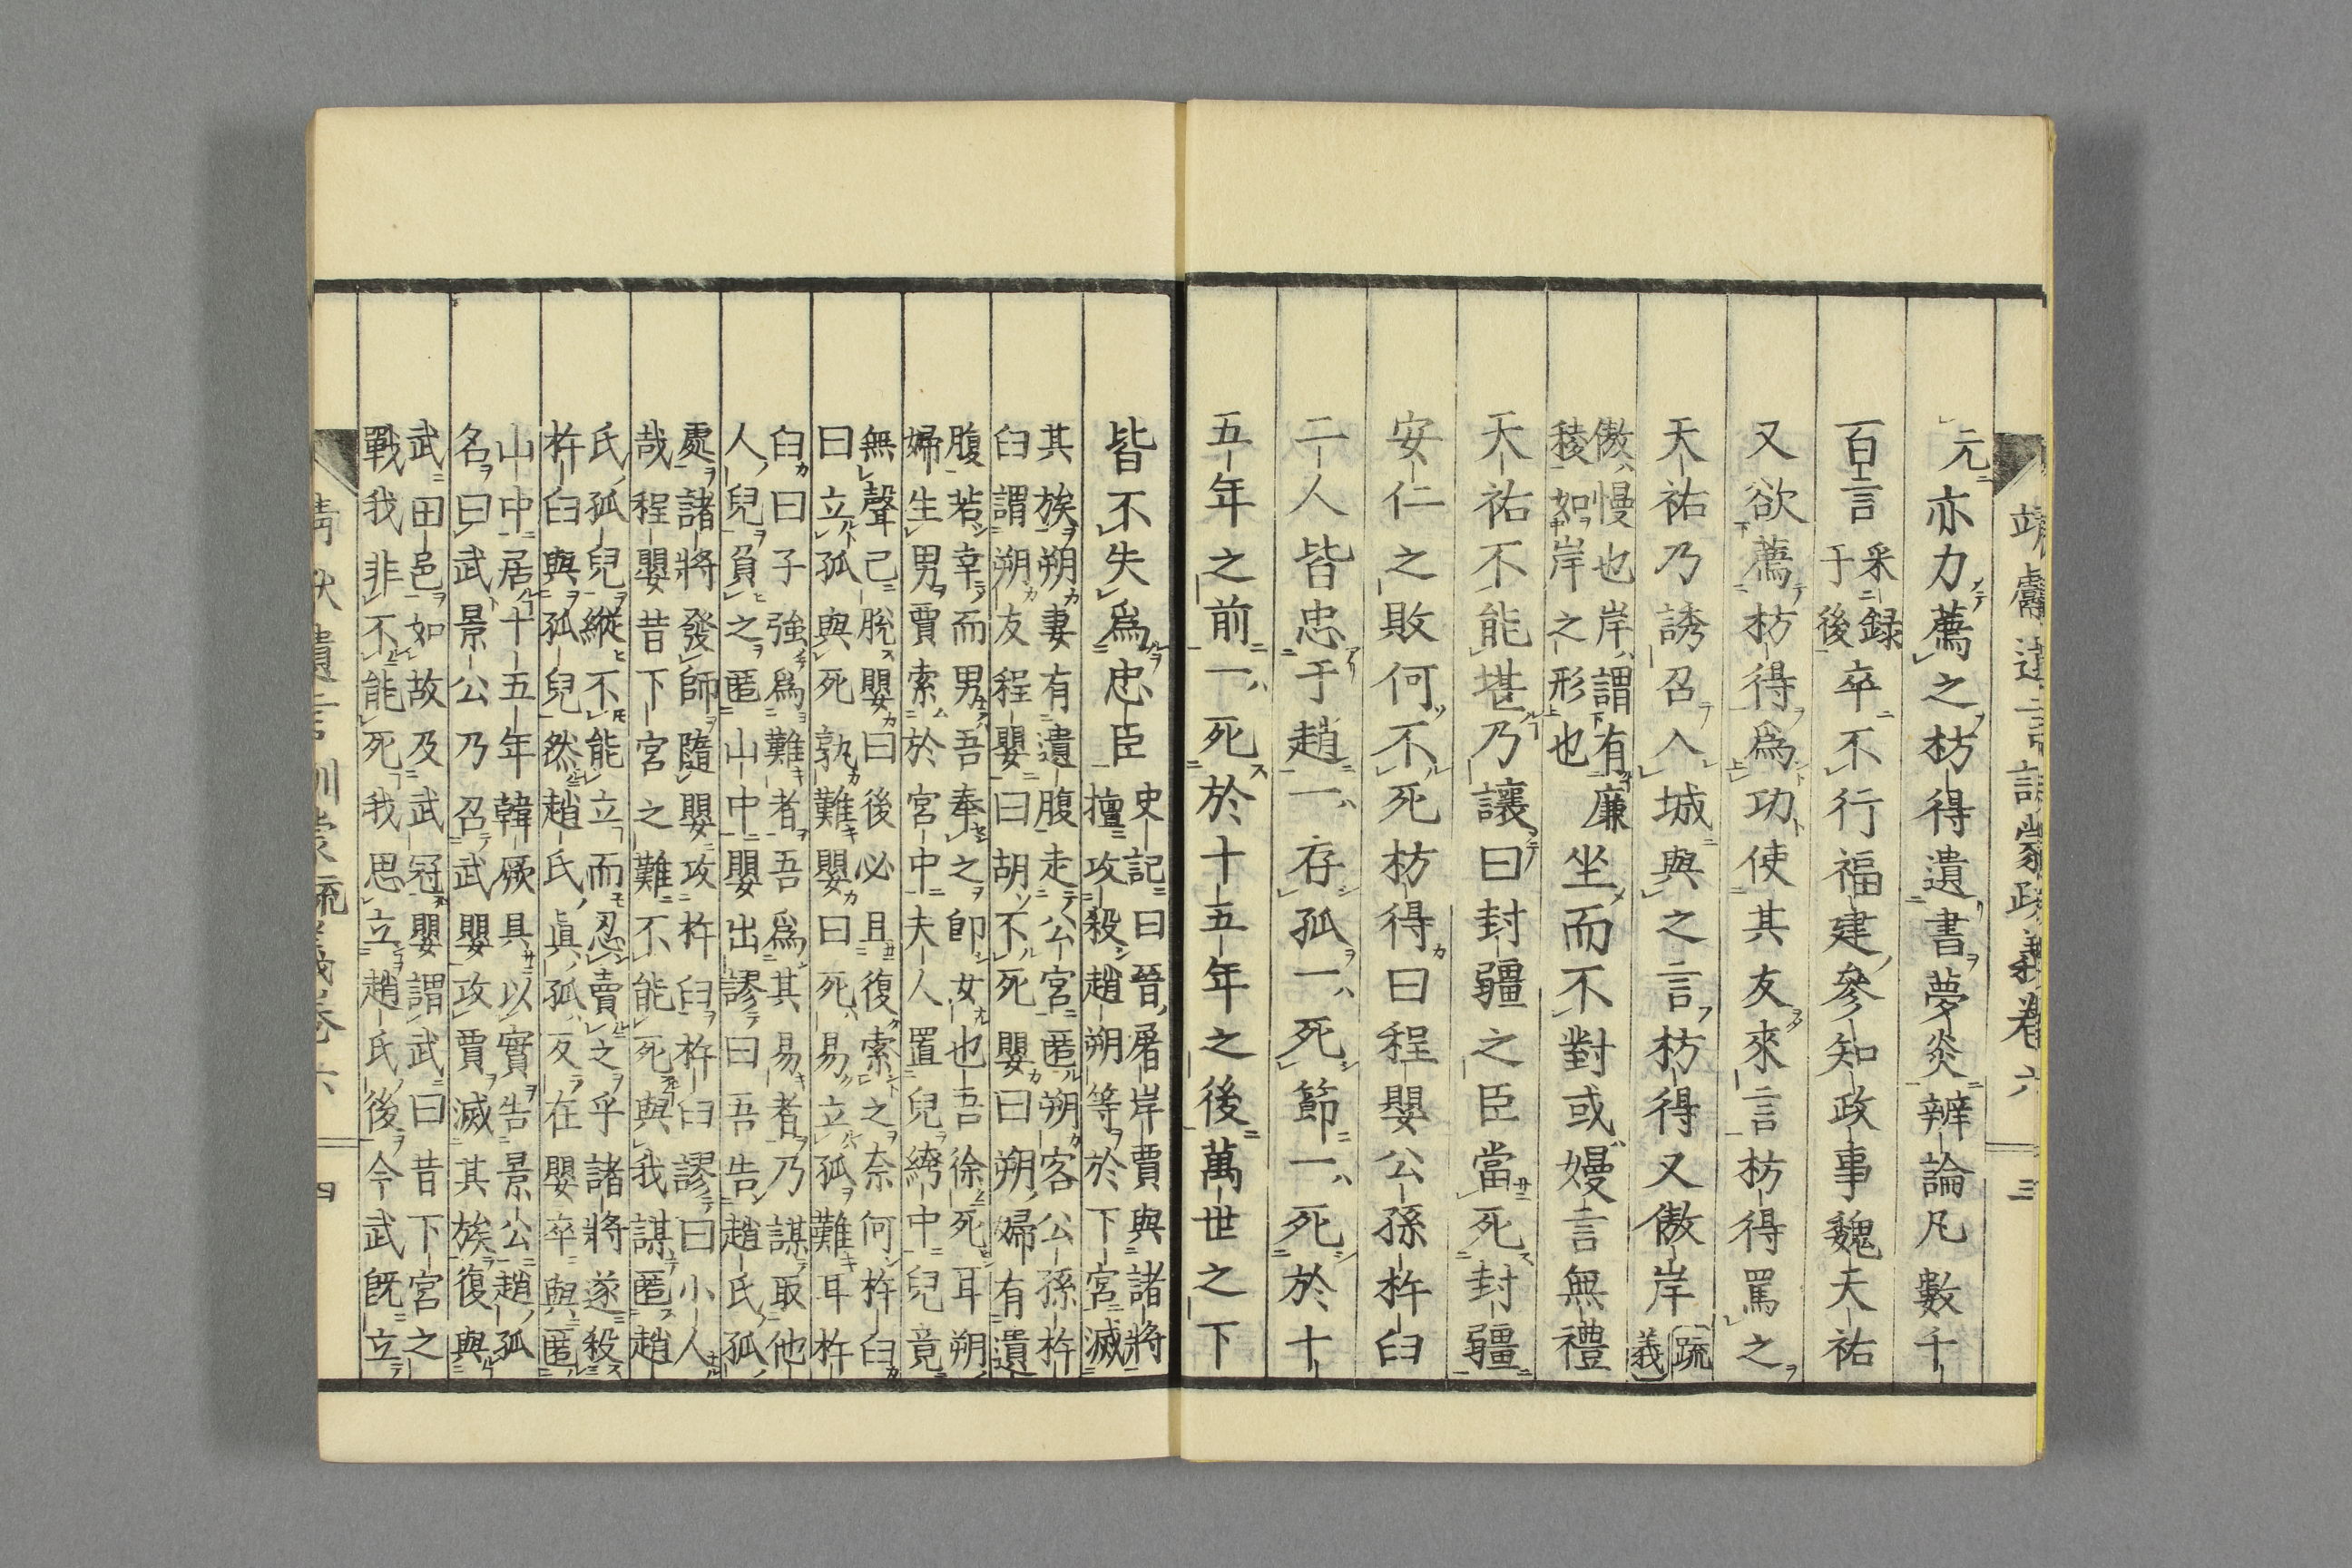 靖獻遺言訓蒙疏義卷六 三
元亦力薦之枋得遺書夢炎辨論凡數千
百言采録于後卒不行福建參知政事魏天祐
又欲薦枋得爲功使其友來言枋得罵之
天祐乃誘召入城與之言枋得又傲岸疏義
傲慢也岸謂有廉
稜如岸之形也
坐而不對或嫚言無禮
天祐不能堪乃讓曰封疆之臣當死封疆
安仁之敗何不死枋得曰程嬰公孫杵臼
二人皆忠于趙一存孤一死節一死於十
五年之前一死於十五年之後萬世之下
皆不失爲忠臣
史記曰晉屠岸賈與諸將
擅攻殺趙朔等於下宮滅
其族朔妻有遺腹走公宮匿朔客公孫杵
臼謂朔友程嬰曰胡不死嬰曰朔婦有遺
腹若幸而男吾奉之卽女也吾徐死耳朔
婦生男賈索於宮中夫人置兒絝中兒竟
無聲已脫嬰曰後必且復索之奈何杵臼
曰立孤與死孰難嬰曰死易立孤難耳杵
臼曰子強爲難者吾爲其易者乃謀取他
人兒負之匿山中嬰出謬曰吾告趙氏孤
處諸將發師隨嬰攻杵臼杵臼謬曰小人
哉程嬰昔下宮之難不能死與我謀匿趙
氏孤兒縱不能立而忍賣之乎諸將遂殺
杵臼與孤兒然趙氏眞孤反在嬰卒與匿
山中居十五年韓厥具以實告景公趙孤
名曰武景公乃召武嬰攻賈滅其族復與
武田邑如故及武冠嬰謂武曰昔下宮之
戰我非不能死我思立趙氏後今武既立
靖獻遺言訓蒙疏義卷六 四